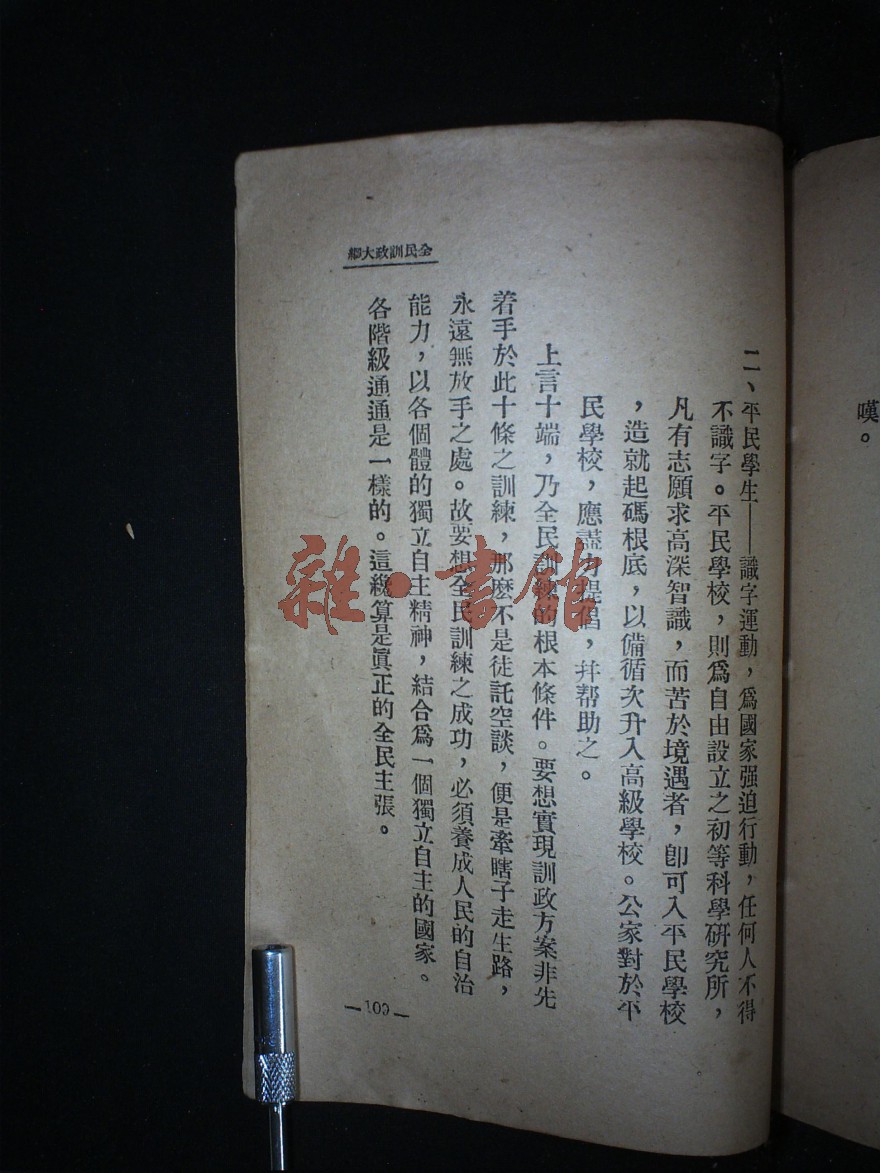 嘆。
二、平民學生——識字運動，爲國家强迫行動，任何人不得
不識字。平民學校，則爲自由設立之初等科學研究所，
凡有志願求高深智識，而苦於境遇者，卽可入平民學校
，造就起碼根底，以備循次升入高級學校。公家對於平
民學校，應盡力提倡，幷帮助之。
上言十端，乃全民訓練的根本條件。要想實現訓政方案非先
着手於此十條之訓練，那麽不是徒託空談，便是牽瞎子走生路，
永遠無放手之處。故要想全民訓練之成功，必須養成人民的自治
能力，以各個體的獨立自主精神，結合爲一個獨立自主的國家。
各階級通通是一樣的。這纔算是眞正的全民主張。
全民訓政大綱
—100—
雜·書館